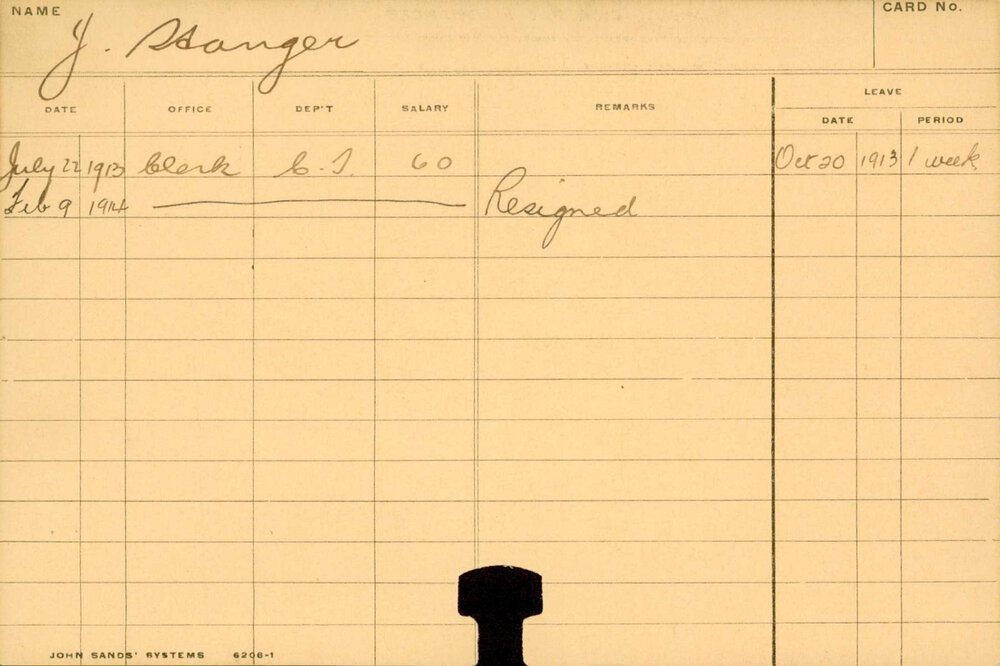 NAME
J. Stanger
CARD No.
DATE OFFICE DEP'T SALARY REMARKS LEAVE
DATE PERIOD
July 22 1913 Clerk C.T. 60 Oct 20 1913 1 week
Feb 9 1914 Resigned
JOHN SANDS' SYSTEMS 6206-1